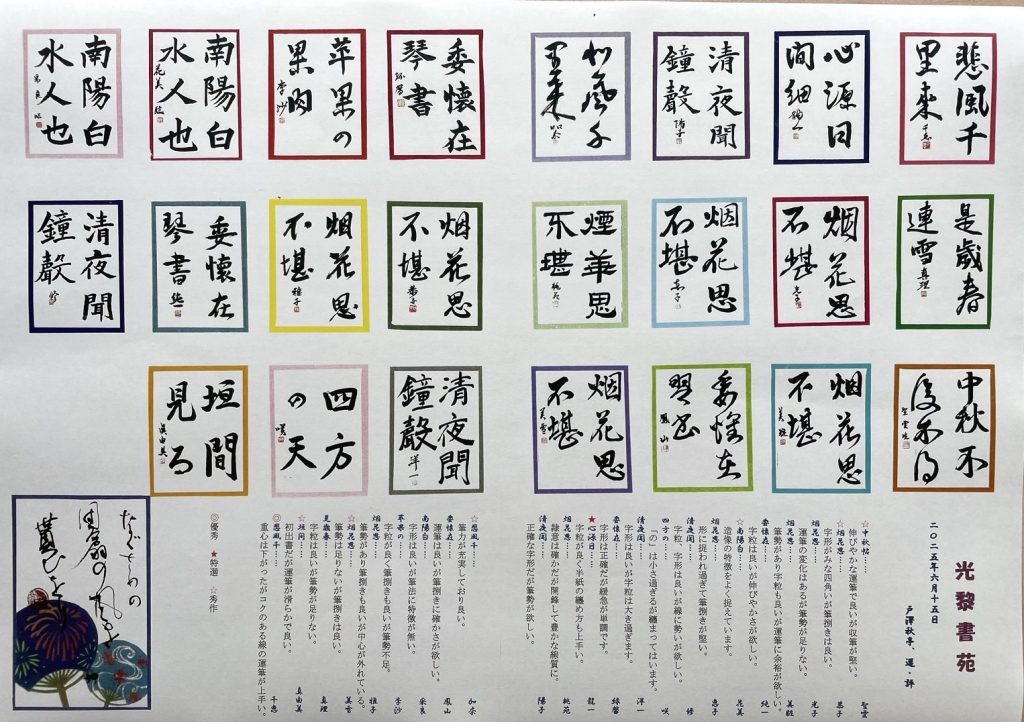 悲風千
里来 千恵
心源日
洵細
清夜聞
鐘聲 陽子
千
里来
委懐在
琴書
苹果の
果肉 李沙
南陽白
水人也 花美 臨
南陽白
水人也 臨
是歳春
連雪 真理
烟花思
不堪 光子
烟花思
不堪 恵子
煙華思
不堪 桃苑
烟花思
不堪 恭子
烟花思
不堪 雅子
委懐在
琴書 純一
清夜聞
鐘聲 修
中秋不
復不得 聖雲臨
烟花思
不堪
委懐在
琴書 鳳山
烟花思
不堪 美雪
清夜聞
鐘聲 洋一
四方
の天 咲
垣間
見る 眞由美
光黎書苑
二〇二五年六月十五日
戸澤秋亭、選評
☆中秋帖…… 聖雲
伸びやかな運筆で良いが収筆が堅い。
☆烟花思…… 恭子
字形がみな四角いが筆捌きは良い。
烟花思…… 光子
運筆の変化はあるが筆勢が足りない。
烟花思……
筆勢があり字粒も良いが運筆に余裕が欲しい。
委懐在…… 純一
字粒は良いが伸びやかさが欲しい。
☆南陽白…… 花美
造像の特徴をよく捉えています。
烟花思…… 恵子
形に捉われ過ぎて筆捌きが堅い。
清夜聞…… 修
字粒、字形は良いが線に勢いが欲しい。
四方の…… 咲
「の」は小さ過ぎるが纏まってはいます。
清夜聞…… 洋一
字形は良いが字粒は大き過ぎます。
委懐在……
字形は正確だが緩急が単調です。
★心源日…… 龍一
字粒が良く半紙の纏め方も上手い。
烟花思…… 桃苑
隷意は確かだが開鋒して豊かな線質に。
清夜聞…… 陽子
正確な字形だが筆勢が欲しい。
☆悲風千……
筆力が充実しており良い。
委懐在…… 鳳山
運筆は良いが筆捌きに確かさが欲しい。
南陽白…… 采良
字形は良いが筆法に特徴が無い。
苹果の…… 李沙
字粒が良く筆捌きも良いが筆勢不足。
烟花思…… 雅子
筆勢があり筆捌きも良いが中心が外れている。
☆烟花思…… 美雪
筆勢は足りないが筆捌きは良い。
是歳春…… 真理
字粒は良いが筆勢が足りない。
☆垣間…… 真由美
初出書だが運筆が滑らかで良い。
◎悲風千…… 千恵
重心は下がったがコクのある線の運筆が上手い。
◎優秀 ★特選 ☆秀作